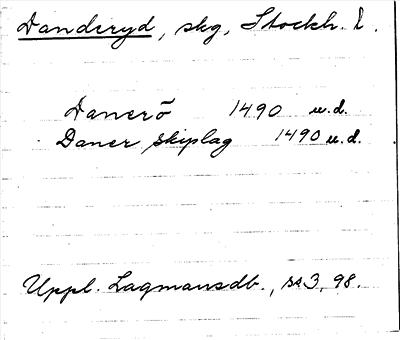 Danderyd, skg, Stockh. l.
Danerö 1490 u.d.
Daner skiplag 1490 u.d.
Uppl. Lagmansdb., ss 3, 98.